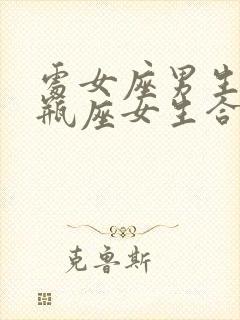 處女座男生
瓶座女生合
克鲁斯